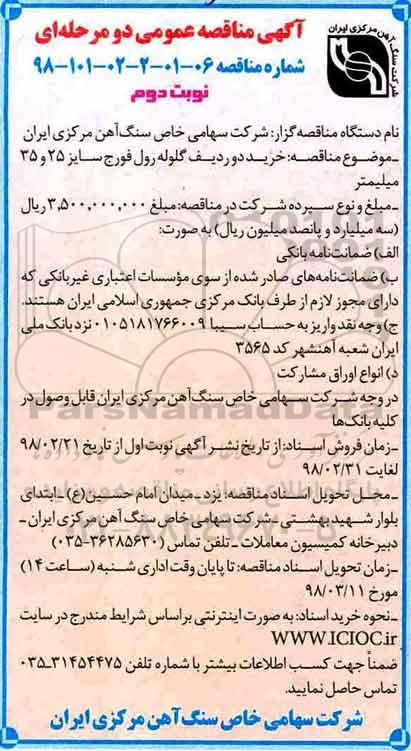 آگهی مناقصه عمومی دو مرحله‌ای
شماره مناقصه ۰۶-۰۱-۲-۰۲-۱۰۱-۹۸
نوبت دوم
شرکت سنگ آهن مرکزی ایران
نام دستگاه مناقصه‌گزار: شرکت سهامی خاص سنگ آهن مرکزی ایران
-موضوع مناقصه: خرید دو ردیف گلوله رول فورج سایز ۲۵ و ۳۵
میلیمتر
-مبلغ و نوع سپرده شرکت در مناقصه: مبلغ ۳,۵۰۰,۰۰۰,۰۰۰ ریال
(سه میلیارد و پانصد میلیون ریال) به صورت:
الف) ضمانت‌نامه بانکی
ب) ضمانت‌نامه‌های صادر شده از سوی مؤسسات اعتباری غیربانکی که
دارای مجوز لازم از طرف بانک مرکزی جمهوری اسلامی ایران هستند.
ج) وجه نقد واریز به حساب سیبا ۰۱۰۵۱۸۱۷۶۶۰۰۹ نزد بانک ملی
ایران شعبه آهنشهر کد ۳۵۶۵
د) انواع اوراق مشارکت
در وجه شرکت سهامی خاص سنگ آهن مرکزی ایران قابل وصول در
کلیه بانک‌ها
-زمان فروش اسناد: از تاریخ نشر آگهی نوبت اول از تاریخ ۹۸/۰۲/۲۱
لغایت ۹۸/۰۲/۳۱
-محل تحویل اسناد مناقصه: یزد ـ میدان امام حسین(ع) ـ ابتدای
بلوار شهید بهشتی ـ شرکت سهامی خاص سنگ آهن مرکزی ایران ـ
دبیرخانه کمیسیون معاملات ـ تلفن تماس (۳۶۲۸۵۶۳۰-۰۳۵)
-زمان تحویل اسناد مناقصه: تا پایان وقت اداری شنبه (ساعت ۱۴)
مورخ ۹۸/۰۳/۱۱
-نحوه خرید اسناد: به صورت اینترنتی براساس شرایط مندرج در سایت
WWW.ICIOC.ir
ضمناً جهت کسب اطلاعات بیشتر با شماره تلفن ۳۱۴۵۴۴۷۵-۰۳۵
تماس حاصل نمایید.
شرکت سهامی خاص سنگ آهن مرکزی ایران
ParsNamadData